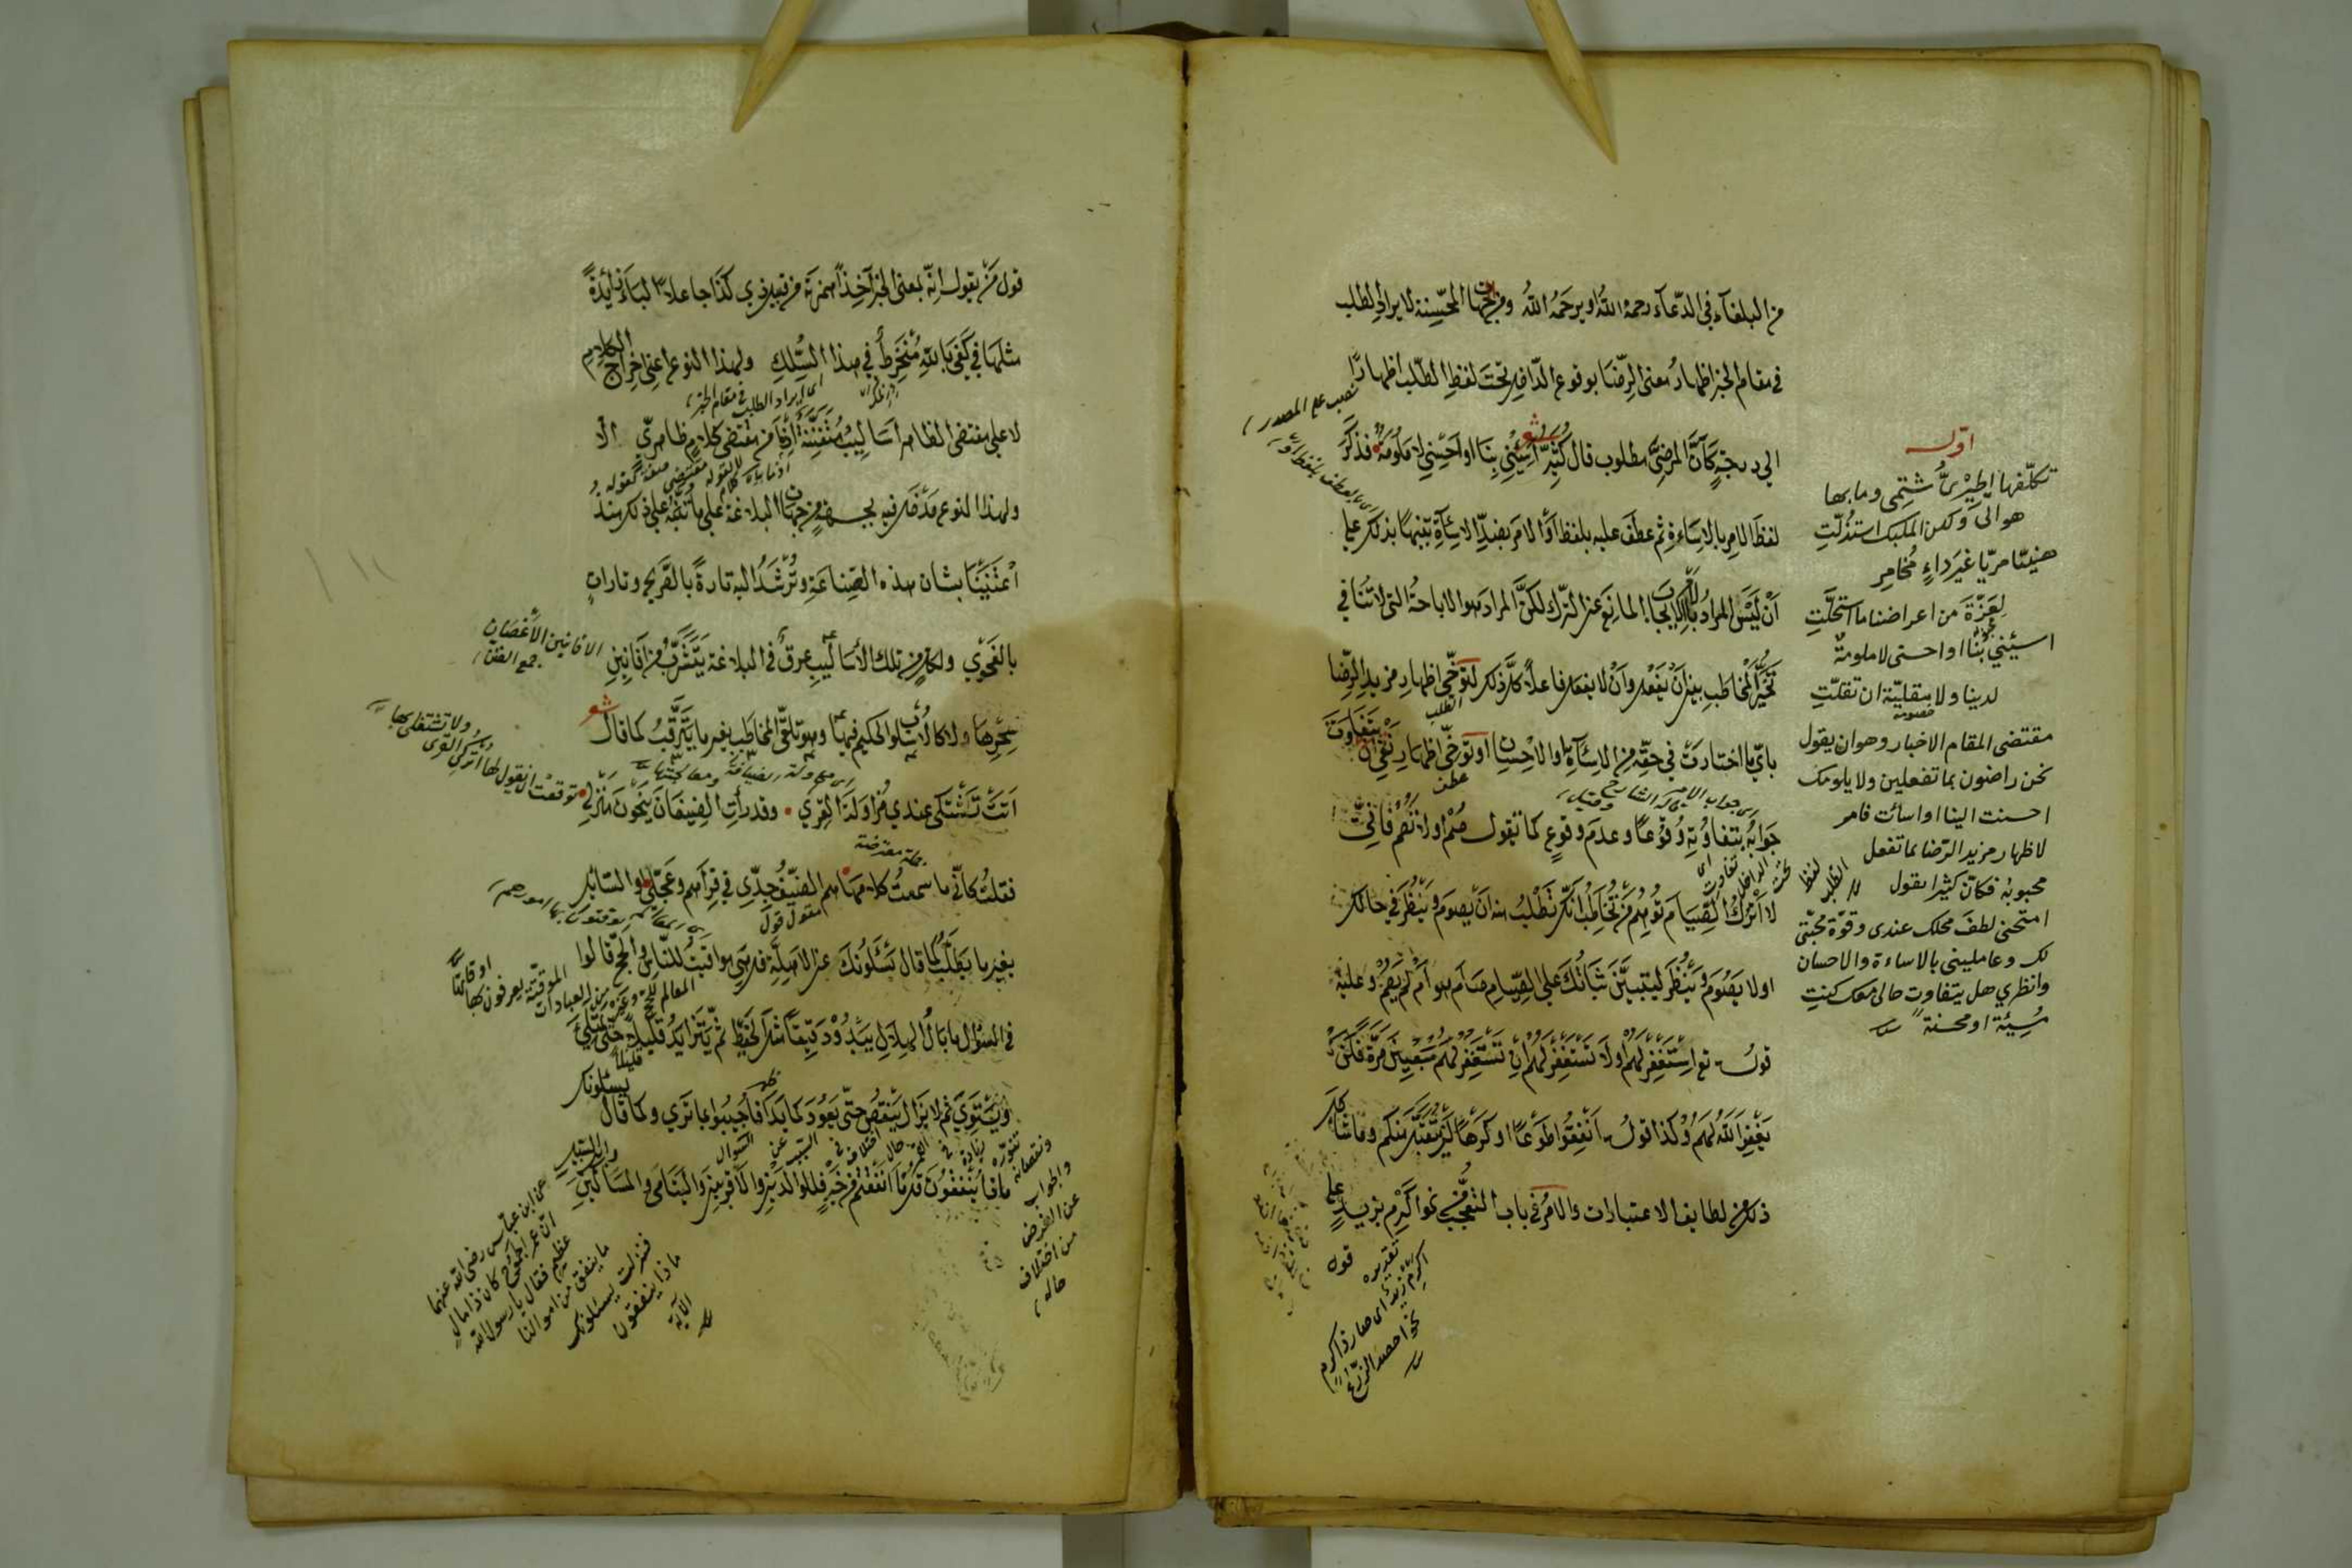 من البلغاء في الدعاء رحمه الله او يرحمه الله ومن الجهات المحسّنة لايراد الطلب
في مقام الخبر اظهار معنى الرضا بوقوع الداخل تحت لفظ الطلب اظهارًا
الى درجة كأنّ المرضيّ مطلوب قال كُثيّر شعر أسيئي بنا او أحسني لا ملومة فذكر
لفظ الامر بالاساءة ثم عطف عليه بلفظ أو الامر بضدّ الاساءة تنبيهًا بذلك على
أن ليس المراد بالامر الايجاب المانع عن الترك لكنّ المراد هو الاباحة التي لا تنافي
تخيّر المخاطب بين أن يفعل وأن لا يفعل فاعلًا كل ذلك لتوخّي اظهار مزيد الرضا
بأيّ ما اختارت في حقّه من الاساءة او الاحسان او توخّي اظهار نفي أن يتفاوت
جوابه بتفاوته وقوعًا وعدم وقوع كما تقول صم او لا تصم فاني
لا أترك الصيام توهم من تخاطب انك تطلب منه أن يصوم وينظر في حالك
او لا يصوم وينظر ليتبيّن ثباتك على الصيام صام هو أم لم يصم وعليه
قوله تع استغفر لهم أو لا تستغفر لهم إن تستغفر لهم سبعين مرة فلن
يغفر الله لهم وكذا قوله أنفقوا طوعًا او كرهًا لن يتقبّل منكم وما شاكل
ذلك من لطايف الاعتبارات والامر في باب التعجّب من نحو أكرم بزيد على
قول
نصب على المصدر
اى عطف بلفظ او
اوله
تكلّفها الخنزير شتمي وما بها
هواني ولكن للمليك استذلّت
هنيئًا مريًّا غير داء مخامر
لعزّة من اعراضنا ما استحلّت
اسيئي بنا او احسني لا ملومة
لدينا ولا مقليّة ان تقلّت
مقتضى المقام الاخبار وهو ان يقول
نحن راضون بما تفعلين ولا يلومك
احسنت الينا او اسأت فامر
لاظهار مزيد الرضا بما تفعل
محبوبه فكانّ كثيرا يقول
امتحنى لطف محلك عندى وقوّة محبّتى
لك وعاملينى بالاساءة والاحسان
وانظري هل يتفاوت حالى معك كنتِ
مسيئة او محسنة
تقديره
اكرم زيد اى صار ذا كرم
نحو احصد الزرع
قول من يقول انه بمعنى الخبر آخذًا همزته من قبيل ذي كذا جاعلًا الباء زائدة
مثلها في كفى بالله مُنخرط في هذا السلك ولهذا النوع اعنى اخراج الكلام
لا على مقتضى الظاهر أساليب متفننة إذ ما من مقتضى كلام ظاهريّ الا
ولهذا النوع مدخل فيه بجهة من جهات البلاغة على ما ننبّه على ذلك منذ
اعتنينا بشأن هذه الصناعة ونرشد اليه تارة بالتصريح وتارات
بالفحوى ولكل من تلك الأساليب عرق في البلاغة يتشرّب من افانين
سحرها ولا كالاسلوب الحكيم فيها وهو تلقّي المخاطب بغير ما يترقب كما قال شعر
أتت تشتكي عندي مزاولة القرى وقد رأت الضيفان ينحون منزلي
فقلت كأني ما سمعت كلامها هم الضيف جدّي في قراهم وعجّلي او السائل
بغير ما يتطلّب كما قال يسئلونك عن الاهلة قل هي مواقيت للناس والحج قالوا
في السؤال ما بال الهلال يبدو دقيقًا مثل الخيط ثم يتزايد قليلًا قليلًا حتى يمتلئ
ويستوي ثم لا يزال ينقص حتى يعود كما بدا فأجيبوا بما ترى وكما قال يسئلونك
ماذا ينفقون قل ما أنفقتم من خير فللوالدين والأقربين واليتامى والمساكين
وابن السبيل
اى ايراد الطلب في مقام الخبر
الافانين الأغصان
جمع الفنن
توقعت ان يقول لها اتركي القرى
ولا تشتغلي بها
جملة معترضة
مقول قول
عن ابن عبّاس رضى الله عنهما
انّ عمرو بن الجموح كان ذا مال
عظيم فقال يا رسول الله
ما ينفق من اموالنا
فنزلت يسئلونك
ماذا ينفقون
الآية
والجواب
عن الغرض
من اختلاف
حاله